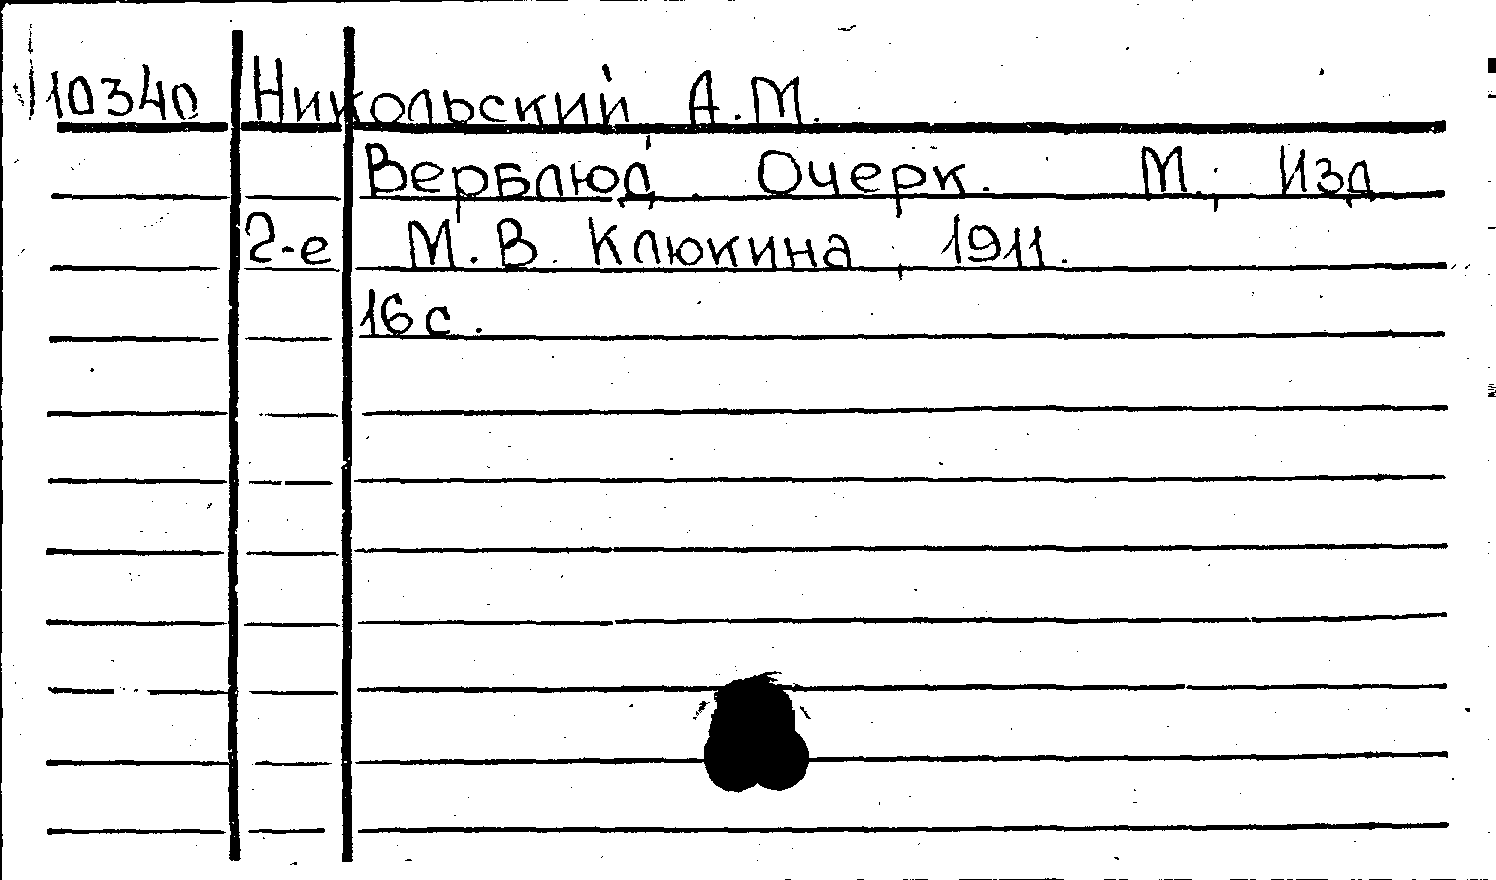 10340 Никольский А.М.
Верблюд. Очерк. М., Изд
2-е М.В. Клюкина, 1911.
16 с.